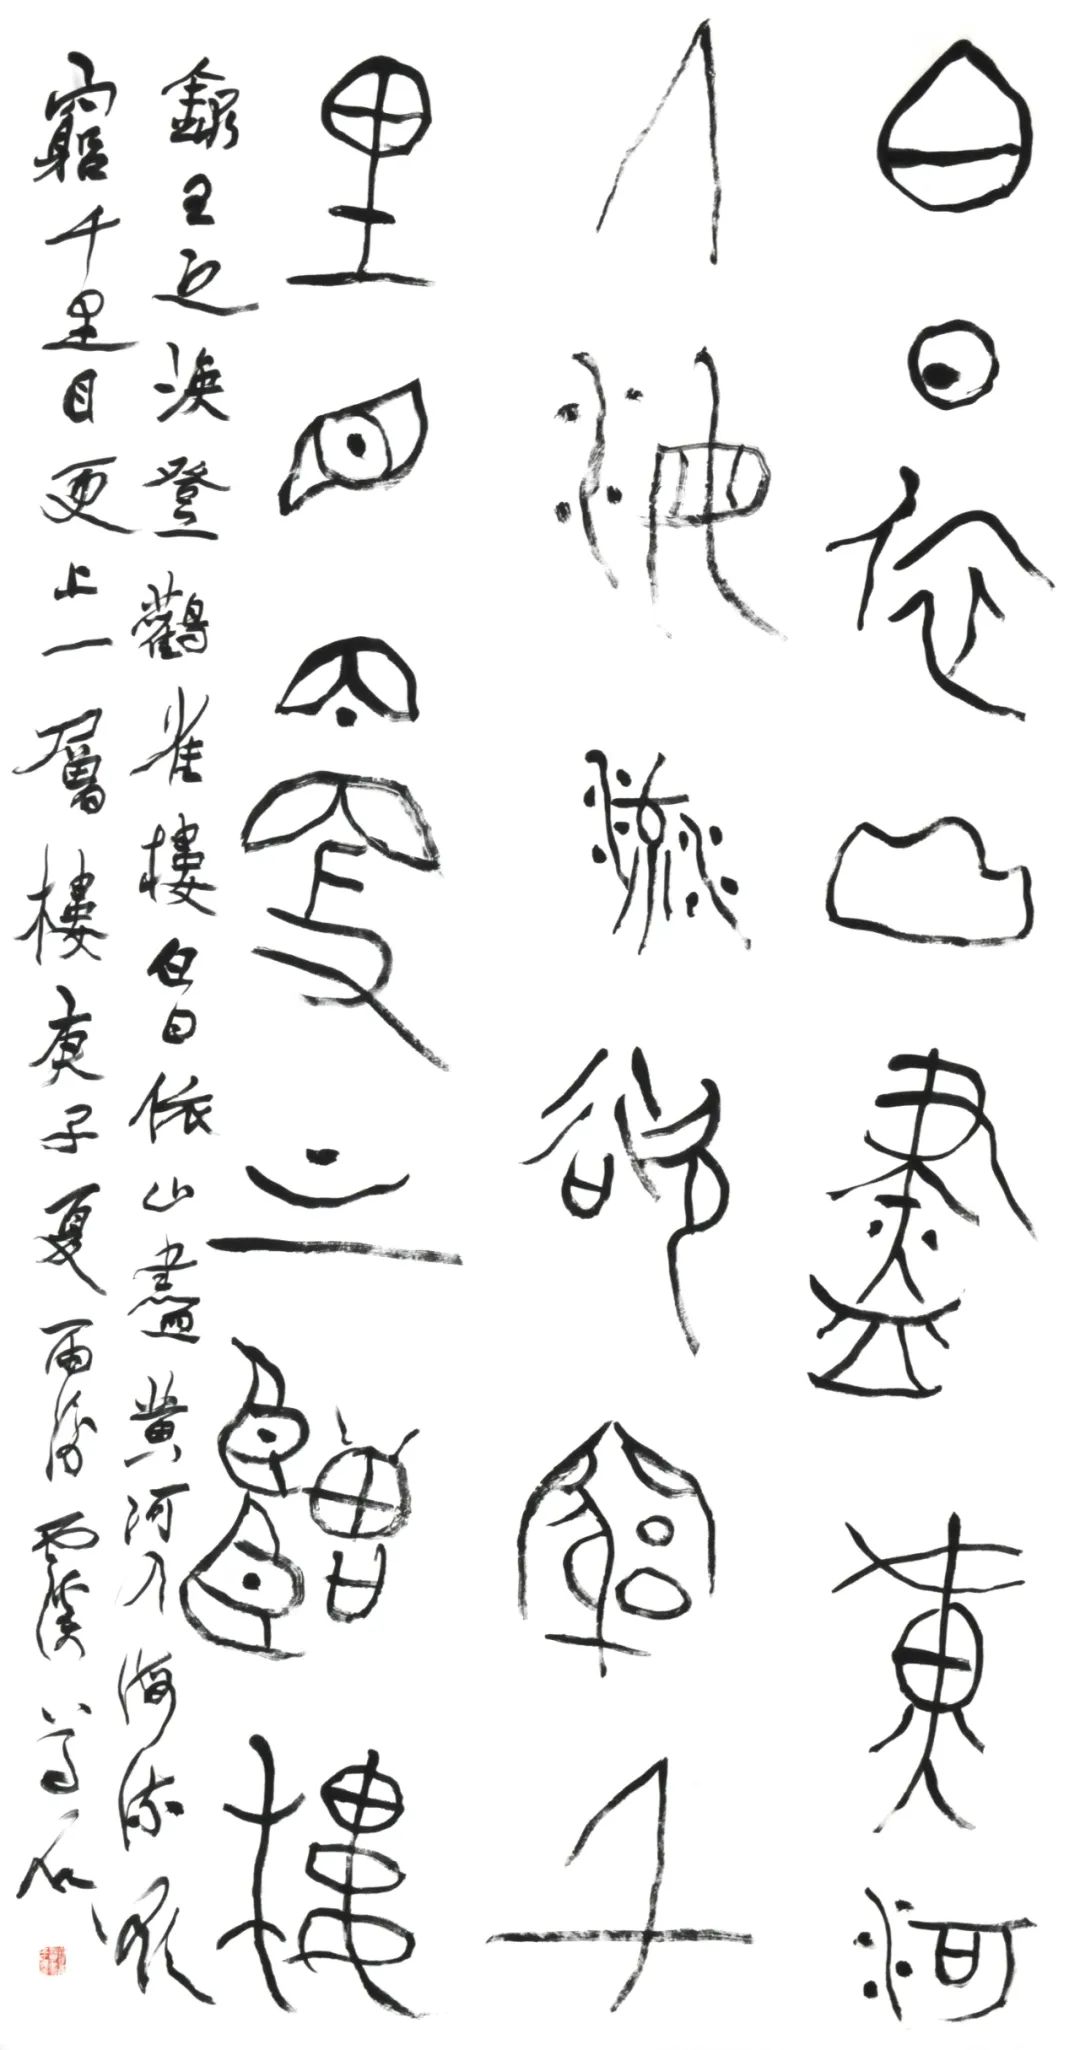 白日依山盡黃河
入海流欲窮千
里目更上一層樓
錄王之渙登鸛雀樓白日依山盡黃河入海流欲
窮千里目更上一層樓庚子夏雨後霞溪尊石